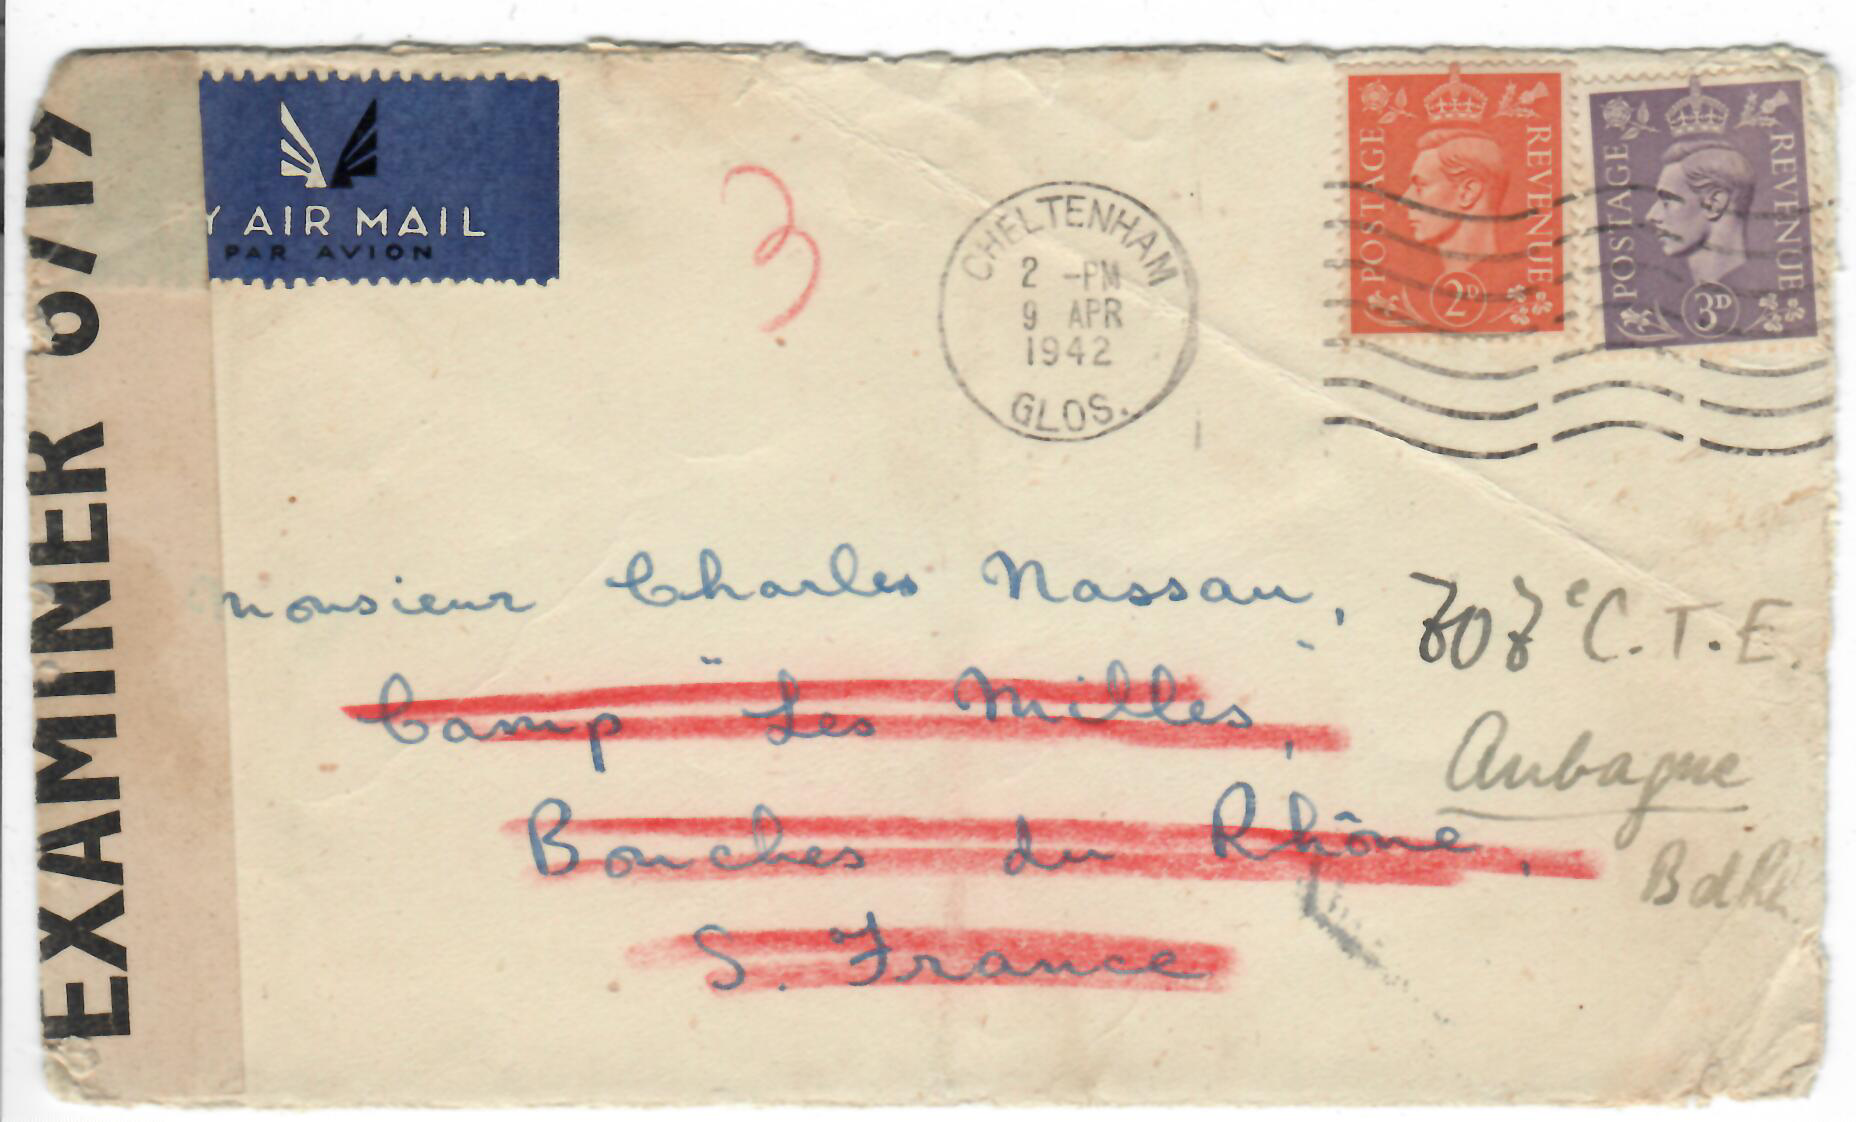 EXAMINER 6719
Y AIR MAIL
PAR AVION
3
CHELTENHAM
2 -PM
9 APR
1942
GLOS.
POSTAGE REVENUE
2D
POSTAGE REVENUE
3D
Monsieur Charles Nassau,
Camp "Les Milles",
Bouches du Rhône,
S. France
707e C.T.E.
Aubagne
B d Rh.